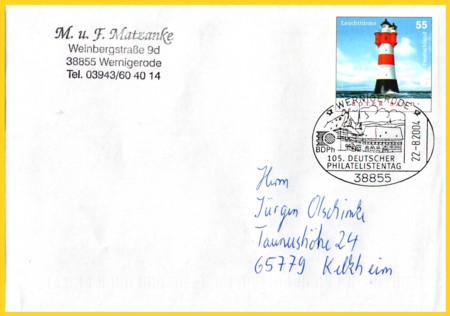 M. u. F. Matzanke
Weinbergstraße 9d
38855 Wernigerode
Tel. 03943/60 40 14
Leuchttürme
55
Deutschland
WERNIGERODE
BDPh
22.-8.2004
105. DEUTSCHER
PHILATELISTENTAG
38855
Herrn
Jürgen Olschimke
Taunushöhe 24
65779 Kelkheim